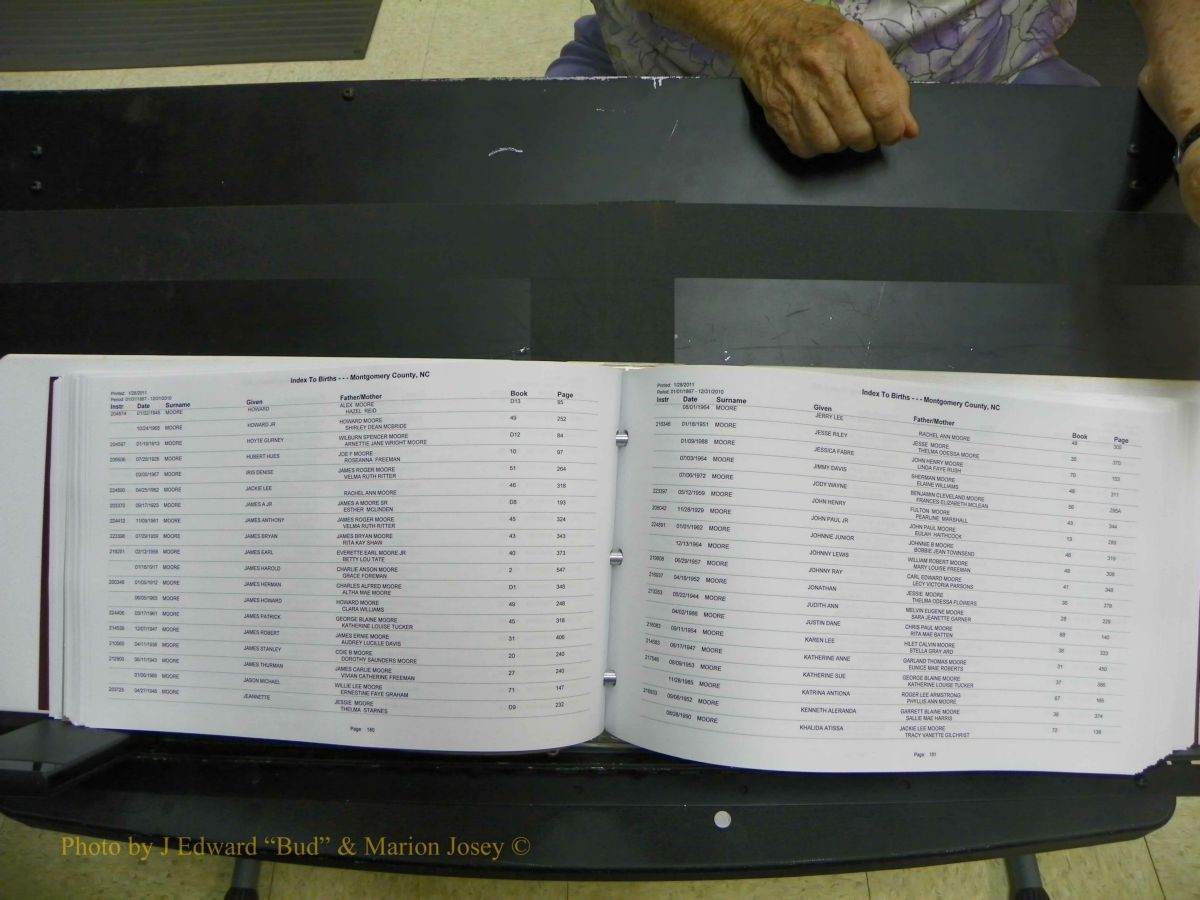 Index To Births - - - Montgomery County, NC
Printed: 1/28/2011
Period: 01/01/1867 - 12/31/2010
Instr Date Surname Given Father/Mother Book Page
MOORE HOWARD ALEX MOORE D13 95
HAZEL REID
MOORE HOWARD JR HOWARD MOORE 49 252
SHIRLEY DEAN MCBRIDE
MOORE HOYTE GURNEY WILBURN SPENCER MOORE D12 84
ARNETTIE JANE WRIGHT MOORE
MOORE HUBERT HUES JOE F MOORE 10 97
ROSEANNA FREEMAN
MOORE IRIS DENISE JAMES ROGER MOORE 51 264
VELMA RUTH RITTER
MOORE JACKIE LEE 46 318
RACHEL ANN MOORE
MOORE JAMES A JR JAMES A MOORE SR D8 193
ESTHER MCLINDEN
MOORE JAMES ANTHONY JAMES ROGER MOORE 45 324
VELMA RUTH RITTER
MOORE JAMES BRYAN JAMES BRYAN MOORE 43 343
RITA KAY SHAW
MOORE JAMES EARL EVERETTE EARL MOORE JR 40 373
BETTY LOU TATE
MOORE JAMES HAROLD CHARLIE ANSON MOORE 2 547
GRACE FOREMAN
MOORE JAMES HERMAN CHARLES ALFRED MOORE D1 348
ALTHA MAE MOORE
MOORE JAMES HOWARD HOWARD MOORE 49 248
CLARA WILLIAMS
MOORE JAMES PATRICK GEORGE BLAINE MOORE 45 318
KATHERINE LOUISE TUCKER
MOORE JAMES ROBERT JAMES ERNIE MOORE 31 406
AUDREY LUCILLE DAVIS
MOORE JAMES STANLEY COIE B MOORE 20 240
DOROTHY SAUNDERS MOORE
MOORE JAMES THURMAN JAMES CARLIE MOORE 27 240
VIVIAN CATHERINE FREEMAN
MOORE JASON MICHAEL WILLIE LEE MOORE 71 147
ERNESTINE FAYE GRAHAM
MOORE JEANNETTE JESSIE MOORE D9 232
THELMA STARNES
Page 180
Printed: 1/28/2011
Period: 01/01/1867 - 12/31/2010
Index To Births - - - Montgomery County, NC
Instr Date Surname Given Father/Mother Book Page
08/01/1964 MOORE JERRY LEE 49 305
RACHEL ANN MOORE
01/18/1951 MOORE JESSE RILEY JESSE MOORE 35 370
THELMA ODESSA MOORE
01/09/1988 MOORE JESSICA FABRE JOHN HENRY MOORE 70 153
LINDA FAYE RUSH
07/03/1964 MOORE JIMMY DAVIS SHERMAN MOORE 48
ELAINE WILLIAMS
07/06/1972 MOORE JODY WAYNE BENJAMIN CLEVELAND MOORE 56
FRANCES ELIZABETH MCLEAN
05/12/1959 MOORE JOHN HENRY FULTON MOORE 43 344
PEARLINE MARSHALL
11/28/1929 MOORE JOHN PAUL JR JOHN PAUL MOORE 13 289
EULAH HAITHCOCK
01/01/1962 MOORE JOHNNIE JUNIOR JOHNNIE B MOORE 46 319
BOBBIE JEAN TOWNSEND
12/13/1964 MOORE JOHNNY LEWIS WILLIAM ROBERT MOORE 48 308
MARY LOUISE FREEMAN
06/29/1957 MOORE JOHNNY RAY CARL EDWARD MOORE 41 348
LECY VICTORIA PARSONS
04/18/1952 MOORE JONATHAN JESSIE MOORE 36 378
THELMA ODESSA FLOWERS
05/22/1944 MOORE JUDITH ANN MELVIN EUGENE MOORE 28 229
SARA JEANETTE GARNER
04/02/1986 MOORE JUSTIN DANE CHRIS PAUL MOORE 68 140
RITA MAE BATTEN
09/11/1954 MOORE KAREN LEE HILET CALVIN MOORE 38 333
STELLA GRAY ARD
06/17/1947 MOORE KATHERINE ANNE GARLAND THOMAS MOORE 31 450
EUNICE MAIE ROBERTS
09/09/1953 MOORE KATHERINE SUE GEORGE BLAINE MOORE 37 386
KATHERINE LOUISE TUCKER
11/28/1985 MOORE KATRINA ANTIONA ROGER LEE ARMSTRONG 67 165
PHYLLIS ANN MOORE
09/06/1952 MOORE KENNETH ALERANDA GARRETT BLAINE MOORE 36 374
SALLIE MAE HARRIS
08/28/1990 MOORE KHALIDA ATISSA JACKIE LEE MOORE 72 138
TRACY VANETTE GILCHRIST
Page 181
Photo by J Edward “Bud” & Marion Josey ©